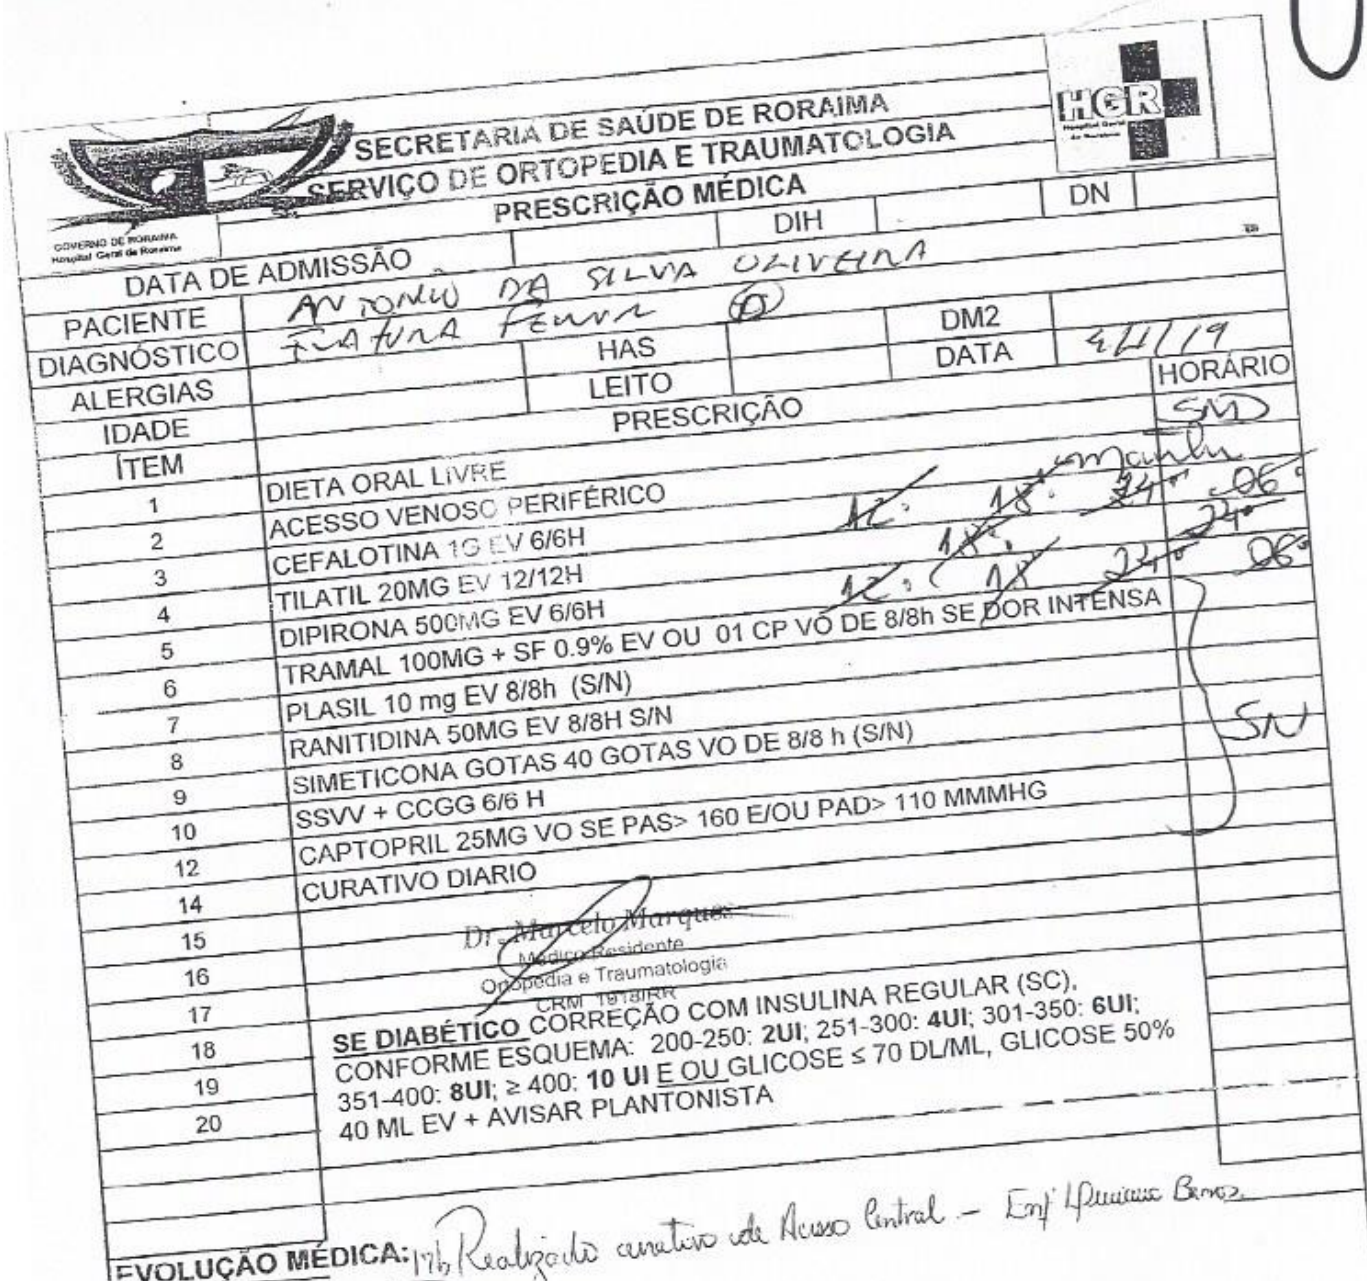 SECRETARIA DE SAÚDE DE RORAIMA
SERVIÇO DE ORTOPEDIA E TRAUMATOLOGIA
PRESCRIÇÃO MÉDICA
HGR
Hospital Geral de Roraima
GOVERNO DE RORAIMA
Hospital Geral de Roraima
DATA DE ADMISSÃO DIH DN
PACIENTE ANTONIO DA SILVA OLIVEIRA
DIAGNÓSTICO FRATURA FEMUR D
ALERGIAS HAS DM2
IDADE LEITO DATA 4/1/19
ÍTEM PRESCRIÇÃO HORÁRIO
1 DIETA ORAL LIVRE SND
2 ACESSO VENOSO PERIFÉRICO
3 CEFALOTINA 1G EV 6/6H 12 18 24 06
4 TILATIL 20MG EV 12/12H 18 24
5 DIPIRONA 500MG EV 6/6H 12 18 24 06
6 TRAMAL 100MG + SF 0.9% EV OU 01 CP VO DE 8/8h SE DOR INTENSA
7 PLASIL 10 mg EV 8/8h (S/N)
8 RANITIDINA 50MG EV 8/8H S/N SN
9 SIMETICONA GOTAS 40 GOTAS VO DE 8/8 h (S/N)
10 SSVV + CCGG 6/6 H
12 CAPTOPRIL 25MG VO SE PAS> 160 E/OU PAD> 110 MMMHG
14 CURATIVO DIARIO
15
16
17
18
19
20
Dr. Marcelo Marques
Médico Residente
Ortopedia e Traumatologia
CRM 1918/RR
SE DIABÉTICO CORREÇÃO COM INSULINA REGULAR (SC),
CONFORME ESQUEMA: 200-250: 2UI; 251-300: 4UI; 301-350: 6UI;
351-400: 8UI; ≥ 400: 10 UI E OU GLICOSE ≤ 70 DL/ML, GLICOSE 50%
40 ML EV + AVISAR PLANTONISTA
EVOLUÇÃO MÉDICA: 17h Realizado curativo de Acesso Central - Enfª